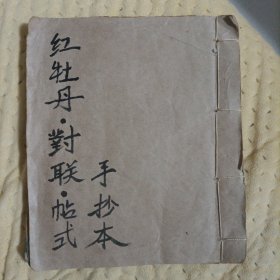 红牡丹·對联·帖式
手抄本